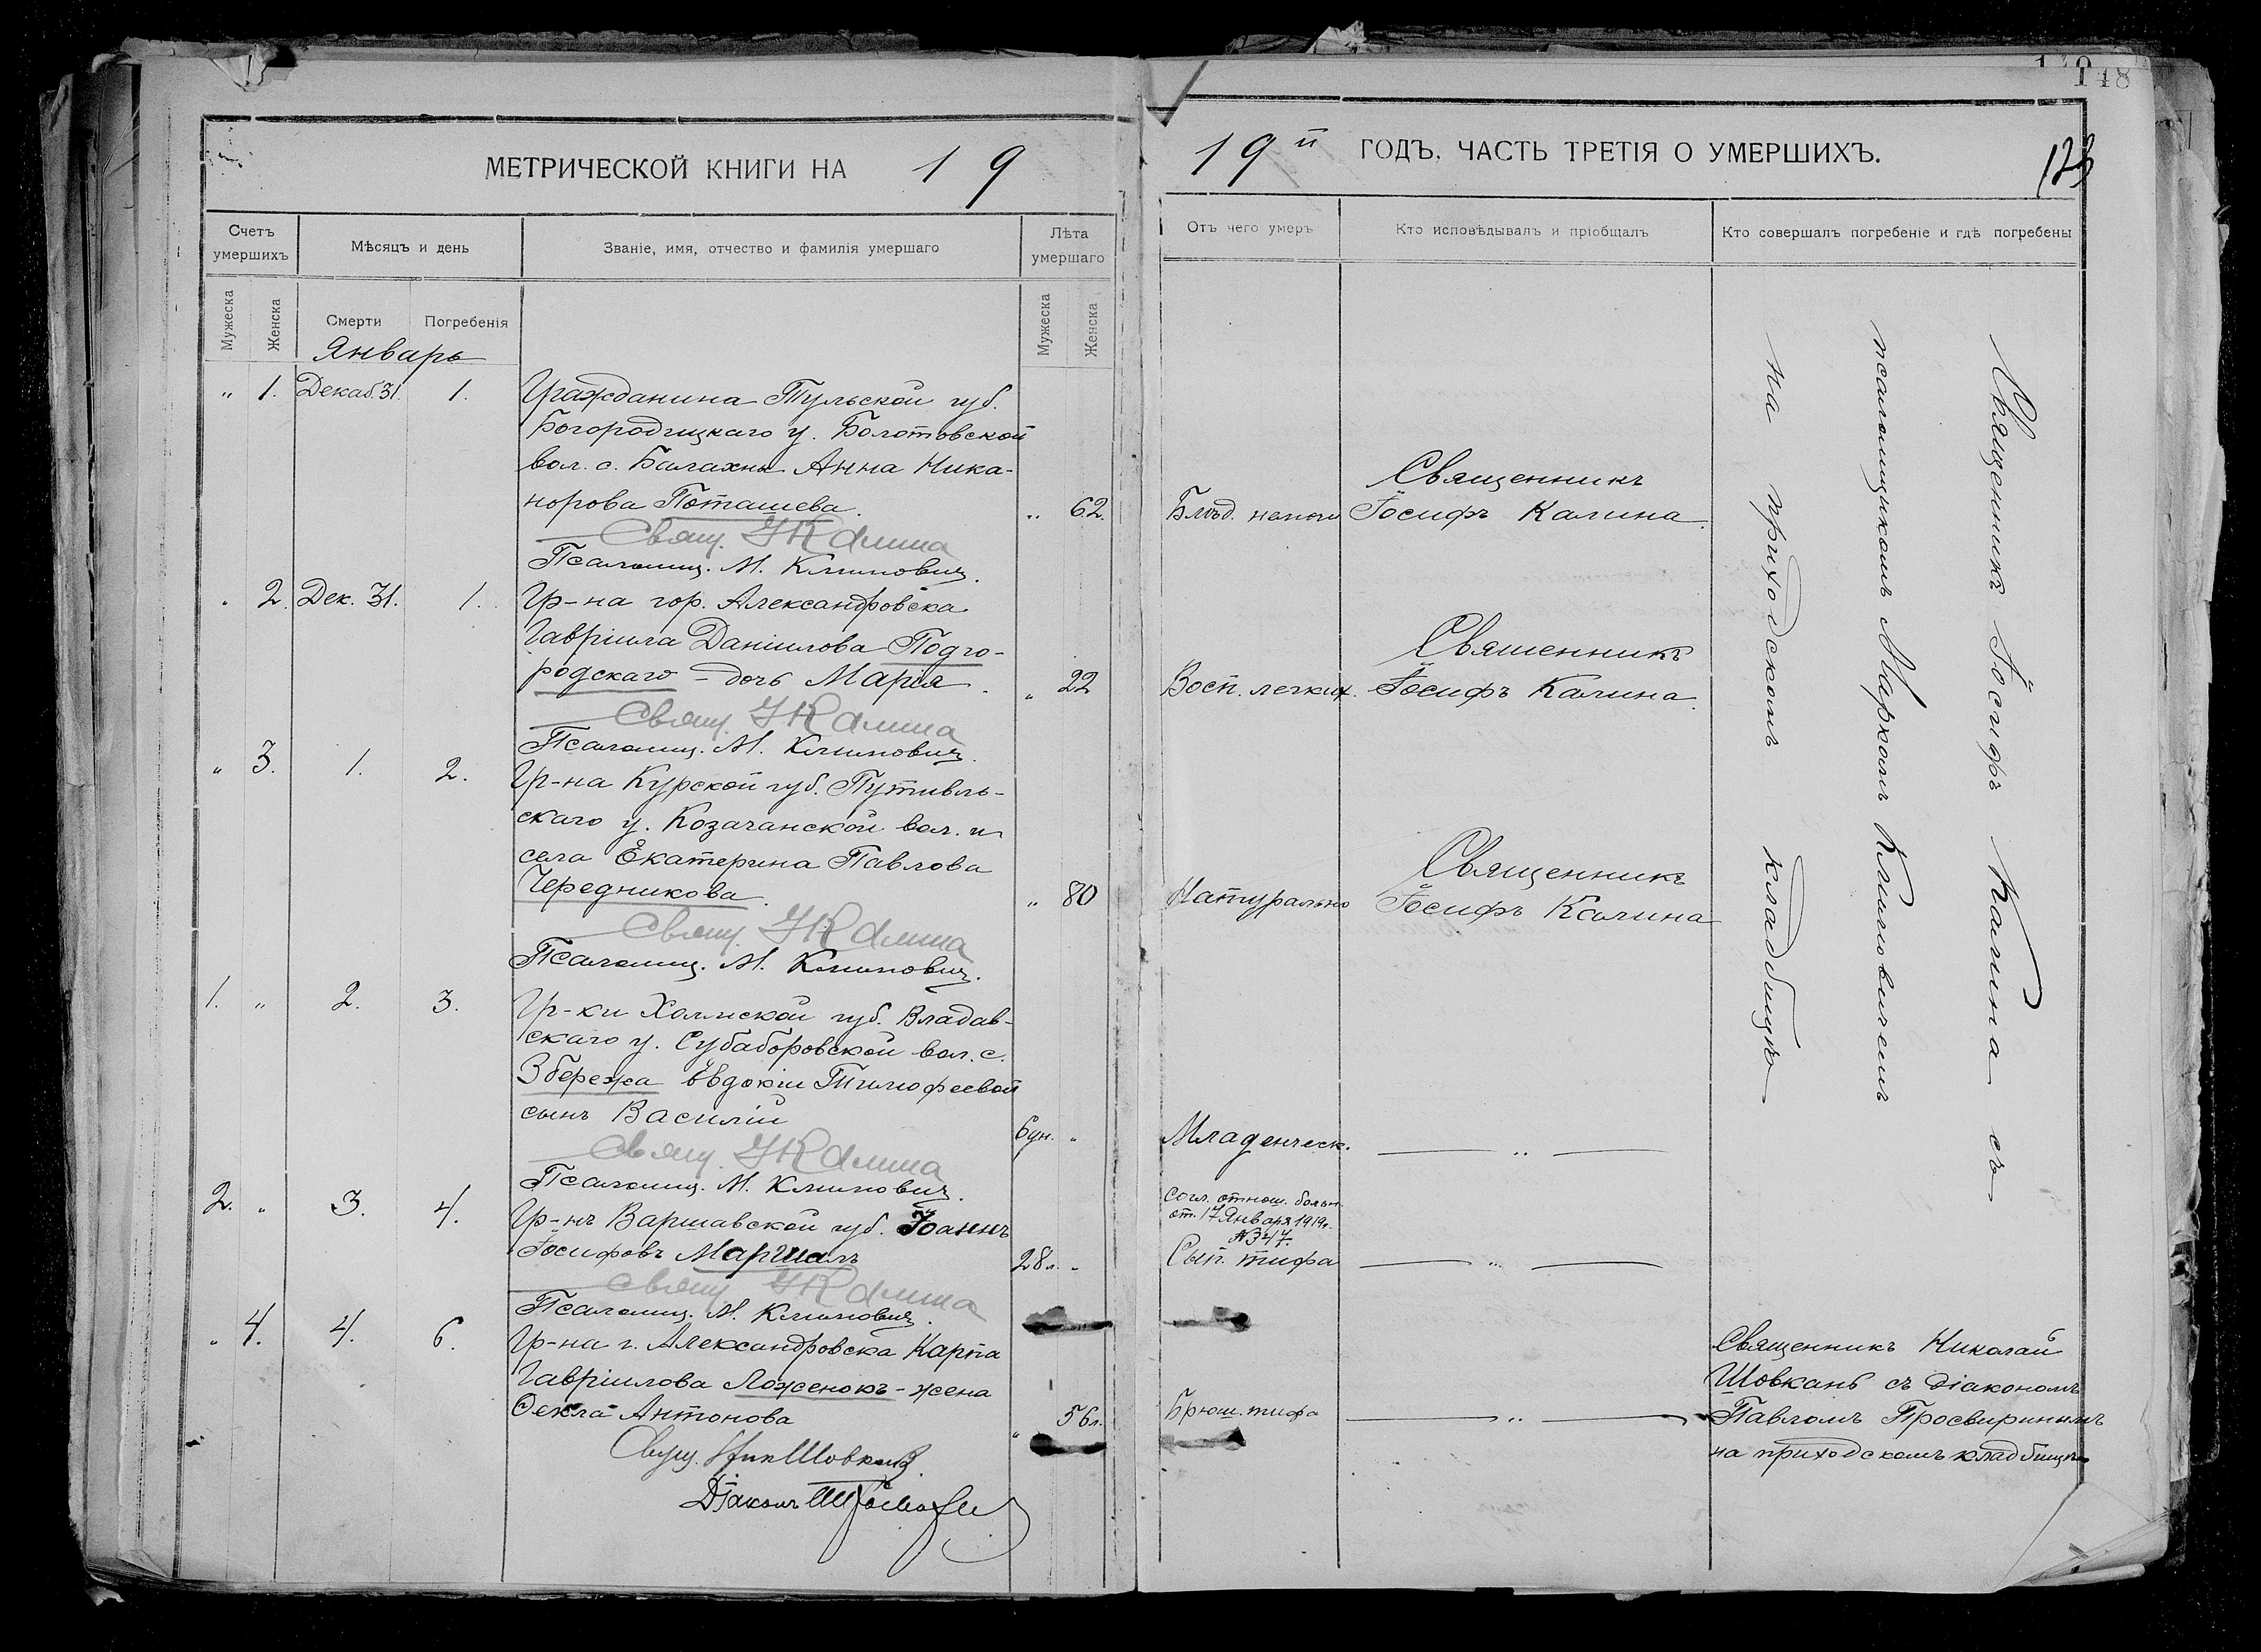 148
МЕТРИЧЕСКОЙ КНИГИ НА 19
19й ГОДЪ, ЧАСТЬ ТРЕТІЯ О УМЕРШИХЪ.
Счетъ умершихъ
Мѣсяцъ и день
Званіе, имя, отчество и фамилія умершаго
Лѣта умершаго
Отъ чего умеръ
Кто исповѣдывалъ и пріобщалъ
Кто совершалъ погребеніе и гдѣ погребены
Мужеска
Женска
Смерти
Погребенія
Мужеска
Женска
Январь
" 1. Декаб. 31. 1. Гражданина Тульской губ.
Богородицкаго у. Болотовской
вол. с. Балахны Анна Ника-
норова Поташева. " 62. Блѣд. немочи Священникъ
Іосифъ Калина.
Свящ. І Калина
Псаломщ. М. Климович.
" 2. Дек. 31. 1. Гр-на гор. Александровска
Гавріила Даніилова Подго-
родскаго - дочь Марія. " 22 Восп. легких. Священникъ
Іосифъ Калина.
Свящ. І Калина
Псаломщ. М. Климович.
" 3. 1. 2. Гр-на Курской губ. Путивль-
скаго у. Козачанской вол. и
села Екатерина Павлова
Чередникова. " 80 Натурально Священникъ
Іосифъ Калина
Свящ. І Калина
Псаломщ. М. Климович.
1. " 2. 3. Гр-ки Холмской губ. Владав-
скаго у. Субаборовской вол. с.
Збережа Евдокіи Тимофеевой
сынъ Василій 6 дн. " Младенческ. — " —
Свящ. І Калина
Псаломщ. М. Климович.
2. " 3. 4. Гр-нъ Варшавской губ. Іоаннъ
Іосифовъ Маршалъ 28 л. "
согл. отнош. больн.
от. 17 Января 1919 г.
№ 347.
Сып. тифа — " —
Свящ. І Калина
Псаломщ. М. Климович.
" 4. 4. 6. Гр-на г. Александровска Карпа
Гавріилова Ложенокъ - жена
Фекла Антонова " 56 л. Брюш. тифа — " —
Свящ. Ник Шовкань
Діаконъ
Священникъ Іосифъ Калина съ
псаломщикомъ Маркомъ Климовичемъ
на приходскомъ кладбищѣ
Священникъ Николай
Шовкань съ діакономъ
Павломъ Просвиринымъ
на приходскомъ кладбищѣ